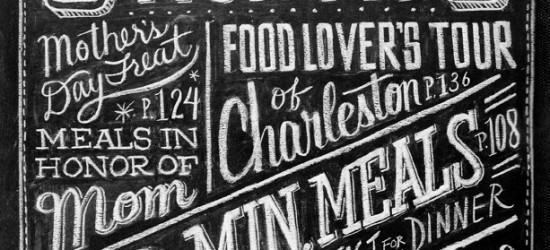 Mother's
Day Treat
P. 124
MEALS IN
HONOR OF
Mom
FOOD LOVER'S TOUR
of
Charleston P. 136
MIN. MEALS
P. 108
FOR DINNER